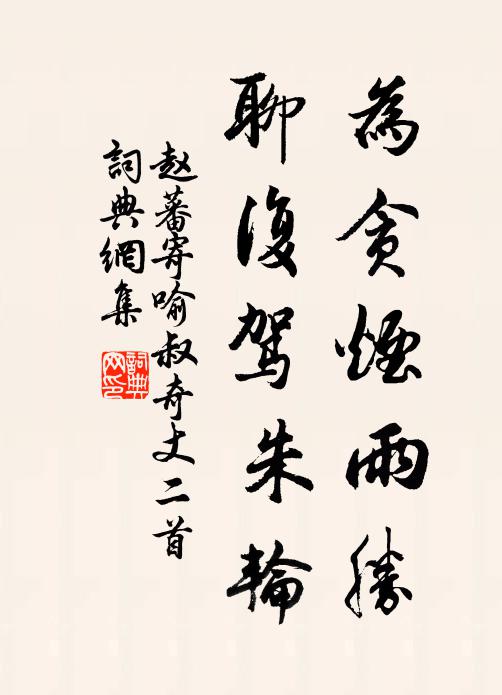 為貪煙雨勝
聊復駕朱輪
赵蕃寄喻叔奇丈二首
詞典網集
詞典網印